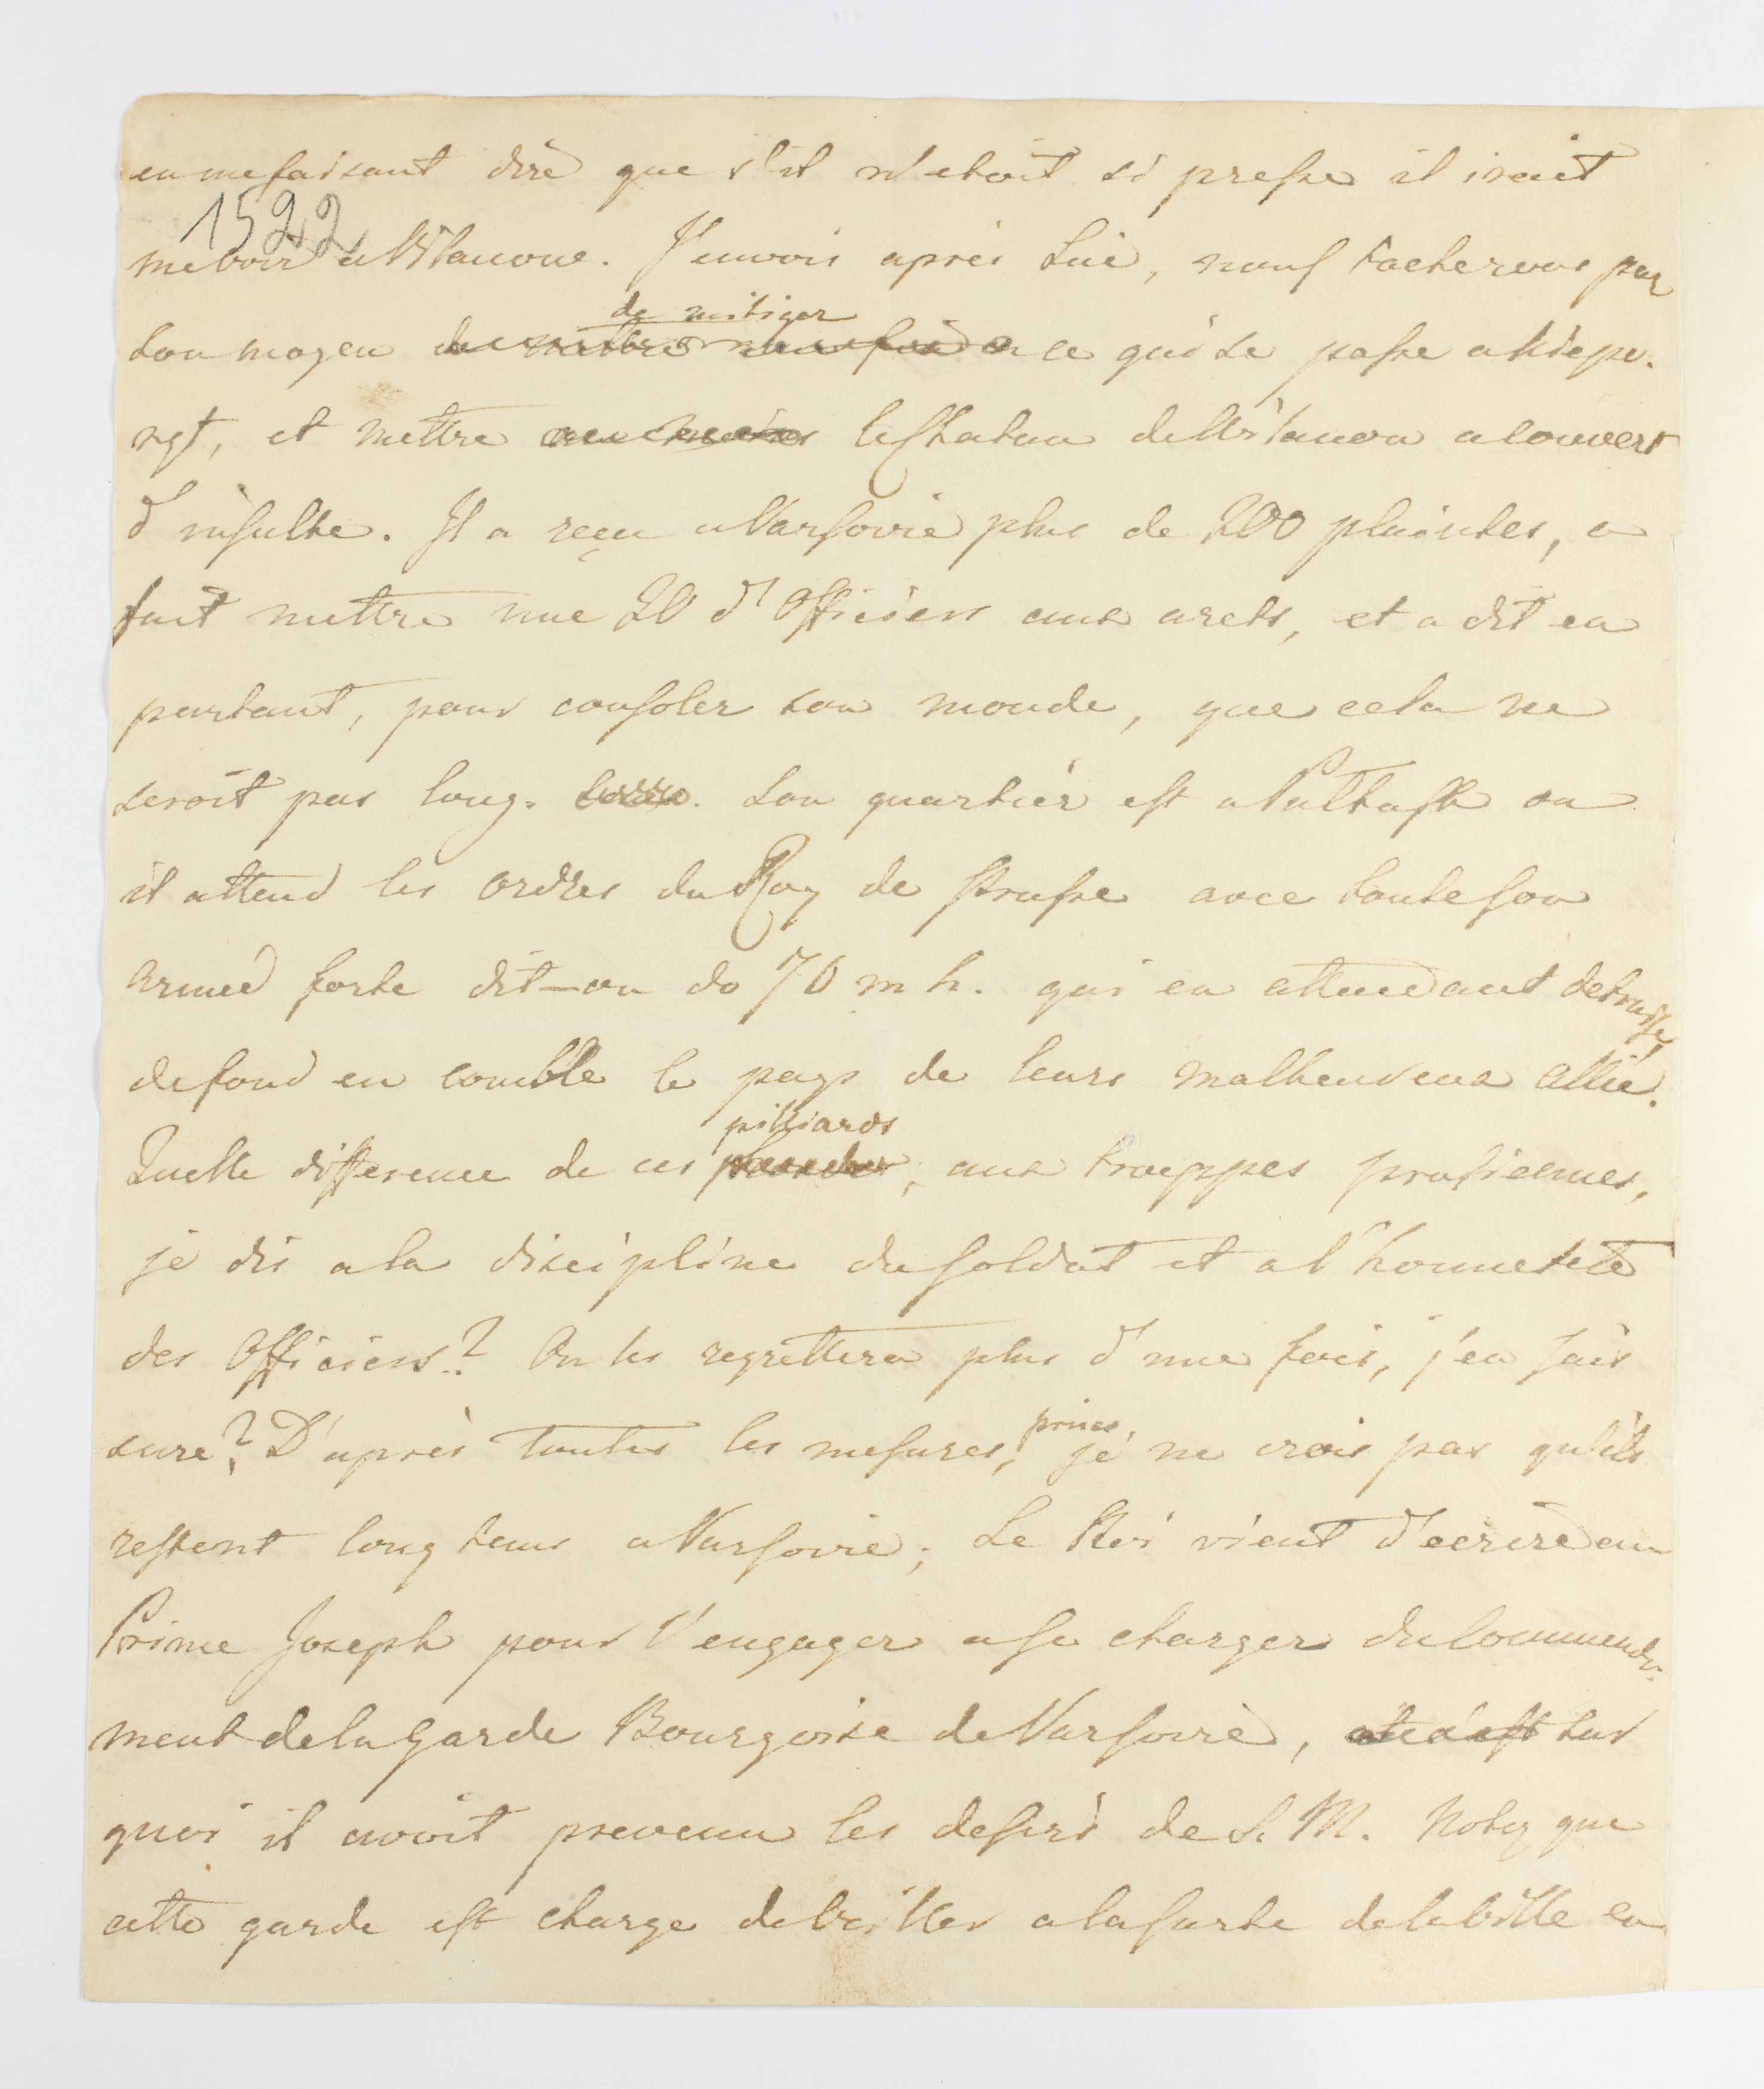 en me faisant dire que s'il n'etoit si presse il iroit
1522
me voir a Wilanove. J'envois après Lui, nous tacherons par
son moyen de mitiger ce qui se passe a Niepo-
ręt, et mettre le Chatau de Wilanow a couvert
d'insulte. Il a reçu a Varsovie plus de 200 plaintes, a
fait mettre une 20 d'Officiers aux arets, et a dit en
partant, pour consoler son monde, que cela ne
seroit pas long. Son quartier est a Pultusk ou
il attend les ordres du Roy de Prusse avec toute son
armeé forte dit-on de 70 m h. qui en attendant detruisse
de fond en comble le pays de leurs malheureux allié.
Quelle difference de ces pilliards, aux trouppes prussiennes,
je dis a la discipline du soldat et a l'honneteté
des Officiers? On les regrettera plus d'une fois, j'en suis
sure? D'après toutes les mesures, prises je ne crois pas qu'ils
restent long tems a Varsovie; Le Roi vient d'ecrire au
Prince Joseph pour l'engager a se charger du Commende-
ment de la Garde Bourgoise de Varsovie, sur
quoi il avoit prevenu les desirs de S. M. Notez que
cette garde est charge de veiller a la surte de la ville en